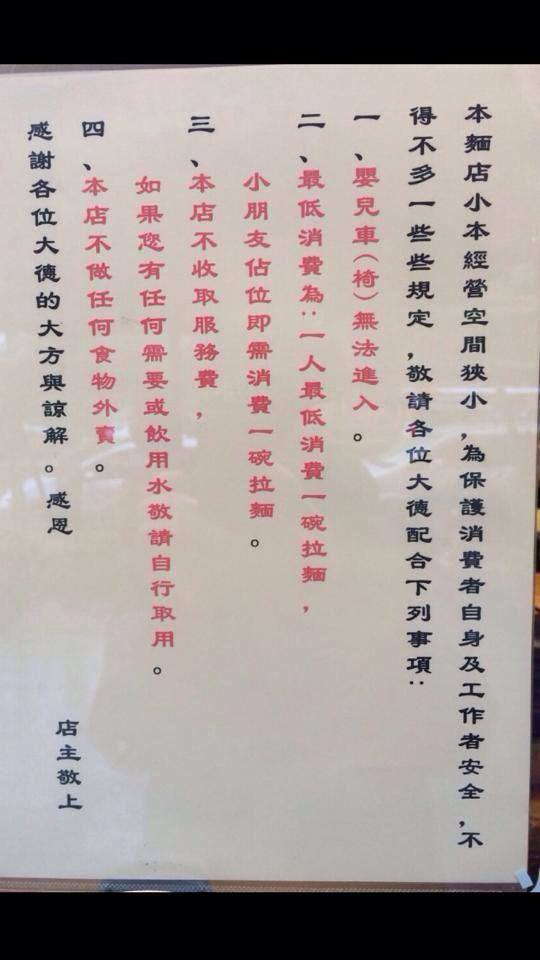 本麵店小本經營空間狹小，為保護消費者自身及工作者安全，不
得不多一些些規定，敬請各位大德配合下列事項：
一、嬰兒車（椅）無法進入。
二、最低消費為：一人最低消費一碗拉麵，
小朋友佔位即需消費一碗拉麵。
三、本店不收取服務費，
如果您有任何需要或飲用水敬請自行取用。
四、本店不做任何食物外賣。
感謝各位大德的大方與諒解。感恩
店主敬上